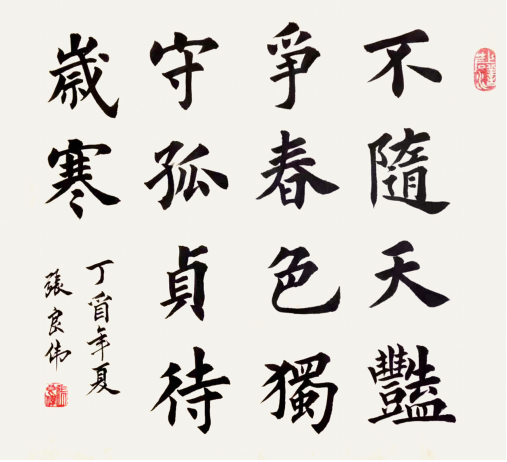 不隨天豔
爭春色獨
守孤貞待
歲寒
丁酉年夏
張良伟